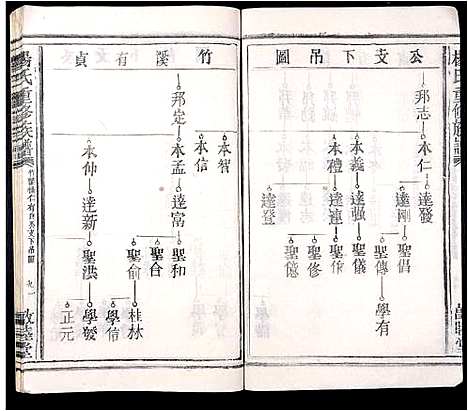 公支下吊圖
邦志
本仁
本義
本禮
達發
達剛
達強
達連
達登
聖倡
聖傳
聖儀
聖作
聖修
聖億
學有
竹溪有貞
邦定
本智
本信
本孟
本仲
達富
達新
聖和
聖合
聖俞
聖洪
桂林
學信
學發
正元
楊氏重修族譜
九一
敦睦堂